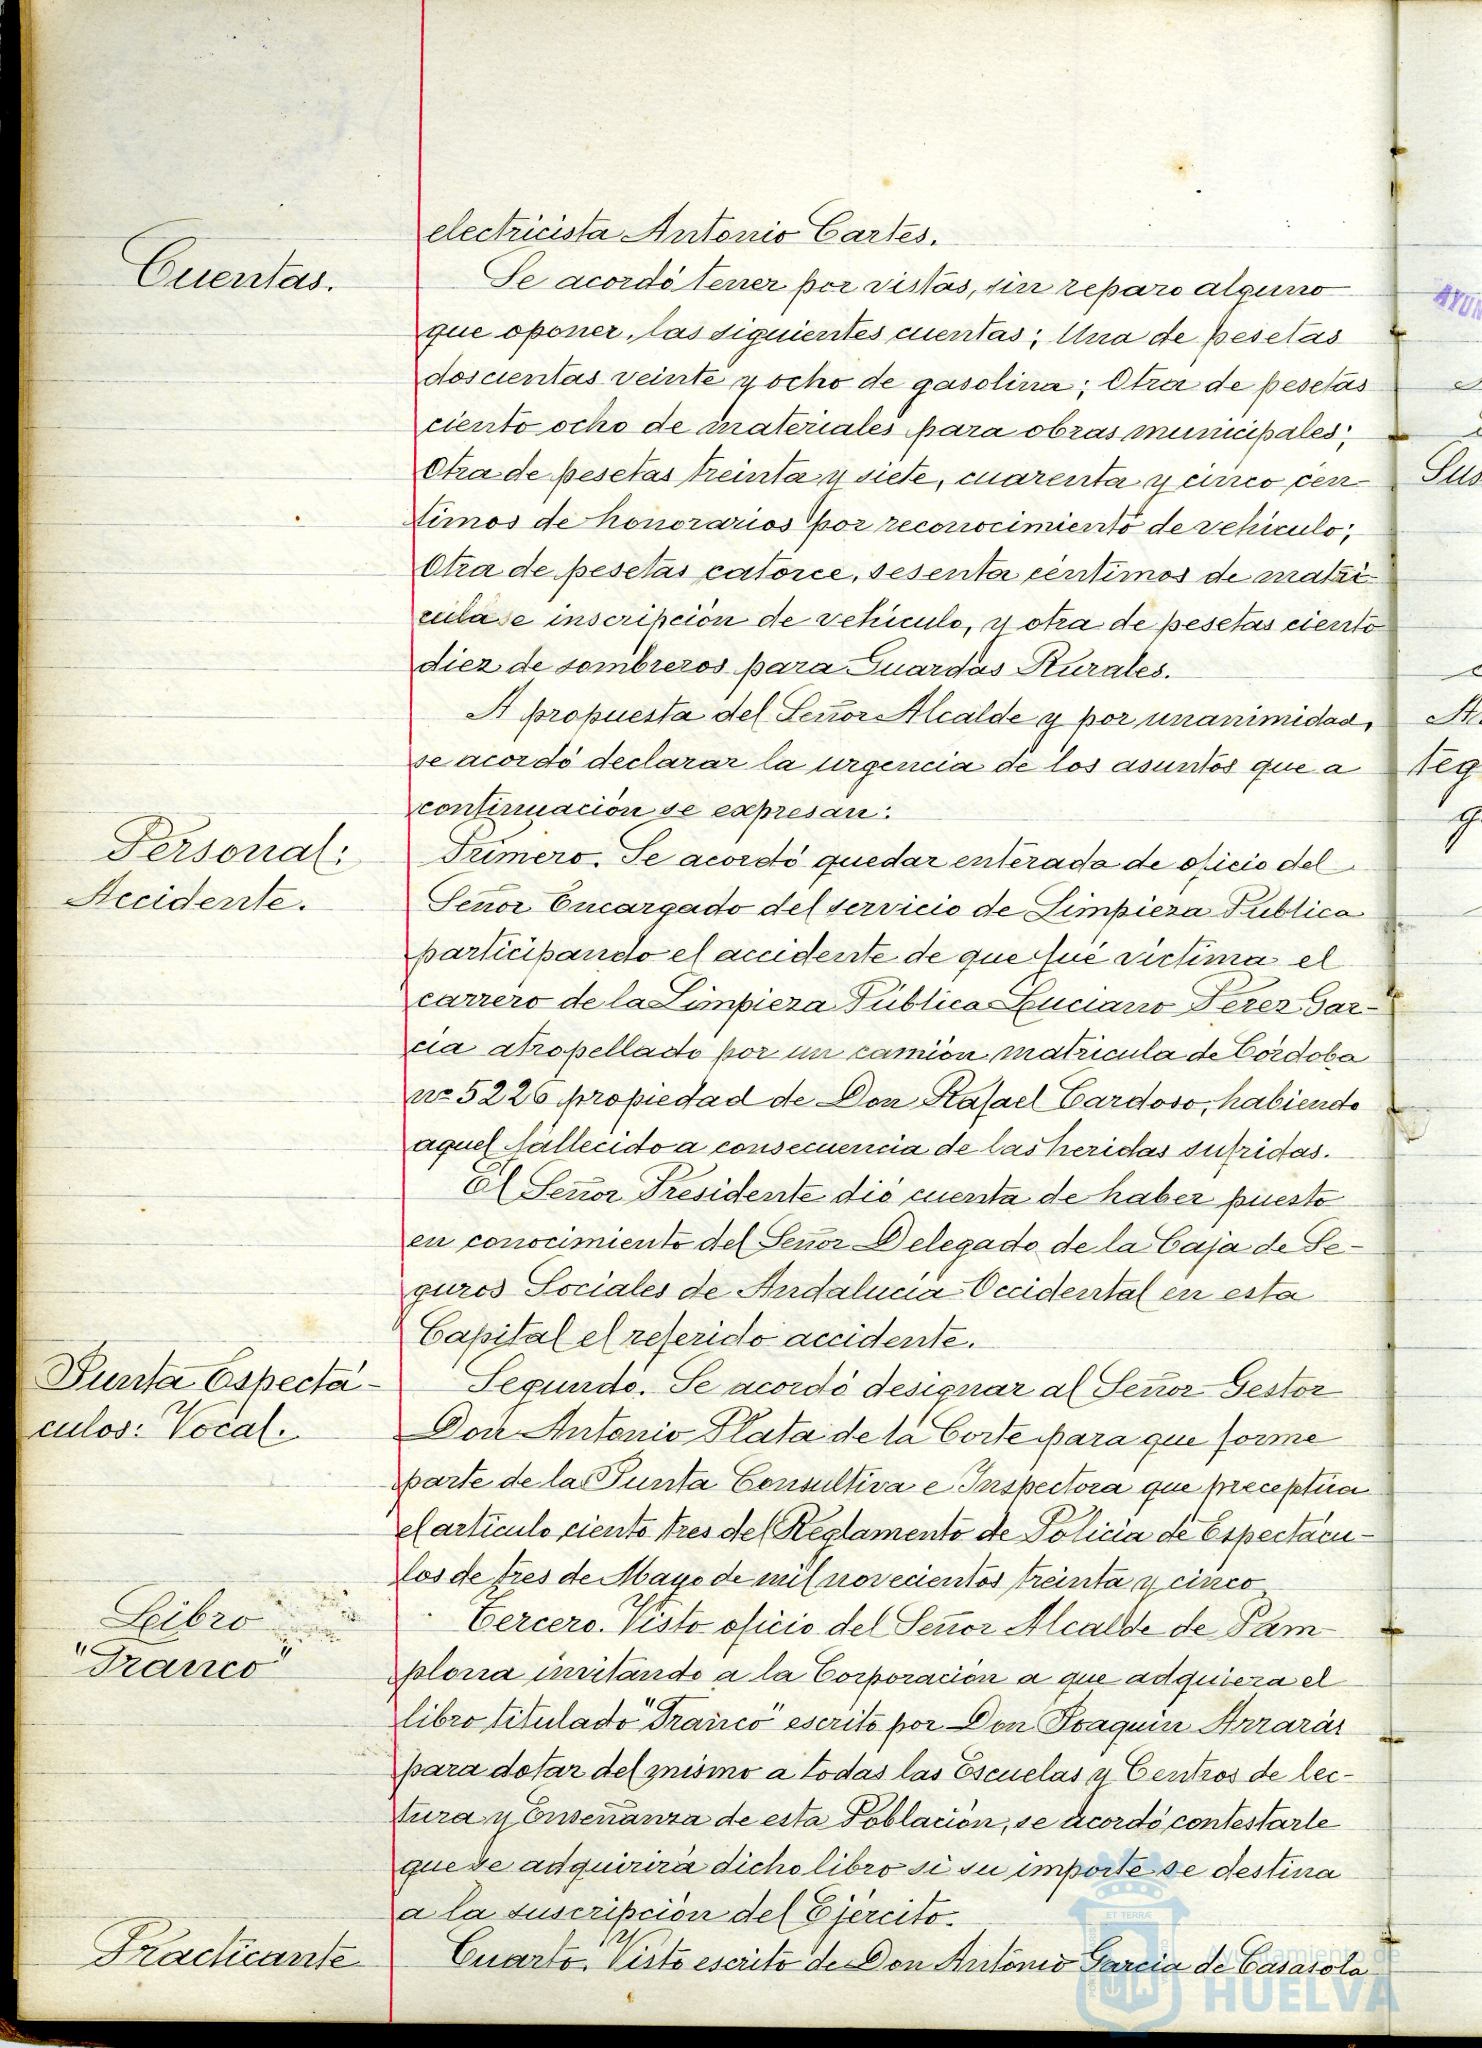 electricista Antonio Cartes.
Cuentas.
Se acordó tener por vistas, sin reparo alguno
que oponer, las siguientes cuentas; Una de pesetas
doscientas veinte y ocho de gasolina; Otra de pesetas
ciento ocho de materiales para obras municipales;
Otra de pesetas treinta y siete, cuarenta y cinco cén-
timos de honorarios por reconocimiento de vehiculo;
Otra de pesetas catorce, sesenta céntimos de matrí-
cula se inscripción de vehículo, y otra de pesetas ciento
diez de sombreros para Guardas Rurales.
A propuesta del Señor Alcalde y por unanimidad,
se acordó declarar la urgencia de los asuntos que a
continuación se expresan:
Personal:
Accidente.
Primero. Se acordó quedar enterada de oficio del
Señor Encargado del servicio de Limpieza Publica
participando el accidente de que fué victima el
carrero de la Limpieza Pública Luciano Perez Gar-
cia atropellado por un camión matricula de Córdoba
nº 5226 propiedad de Don Rafael Cardoso, habiendo
aquel fallecido a consecuencia de las heridas sufridas.
El Señor Presidente dió cuenta de haber puesto
en conocimiento del Señor Delegado de la Caja de Se-
guros Sociales de Andalucia Occidental en esta
Capital el referido accidente.
Junta Espectá-
culos: Vocal.
Segundo. Se acordó designar al Señor Gestor
Don Antonio Plata de la Corte para que forme
parte de la Junta Consultiva e Inspectora que preceptúa
el artículo ciento tres del Reglamento de Policía de Espectácu-
los de tres de Mayo de mil novecientos treinta y cinco
Libro
"Franco"
Tercero. Visto oficio del Señor Alcalde de Pam-
plona invitando a la Corporación a que adquiera el
libro titulado "Franco" escrito por Don Joaquin Arrarás
para dotar del mismo a todas las Escuelas y Centros de lec-
tura y Enseñanza de esta Población, se acordó contestarle
que se adquirirá dicho libro si su importe se destina
a la suscripción del Ejército.
Practicante
Cuarto. Visto escrito de Don Antonio Garcia de Casasola
Ayuntamiento de
HUELVA
AYUN
Sus